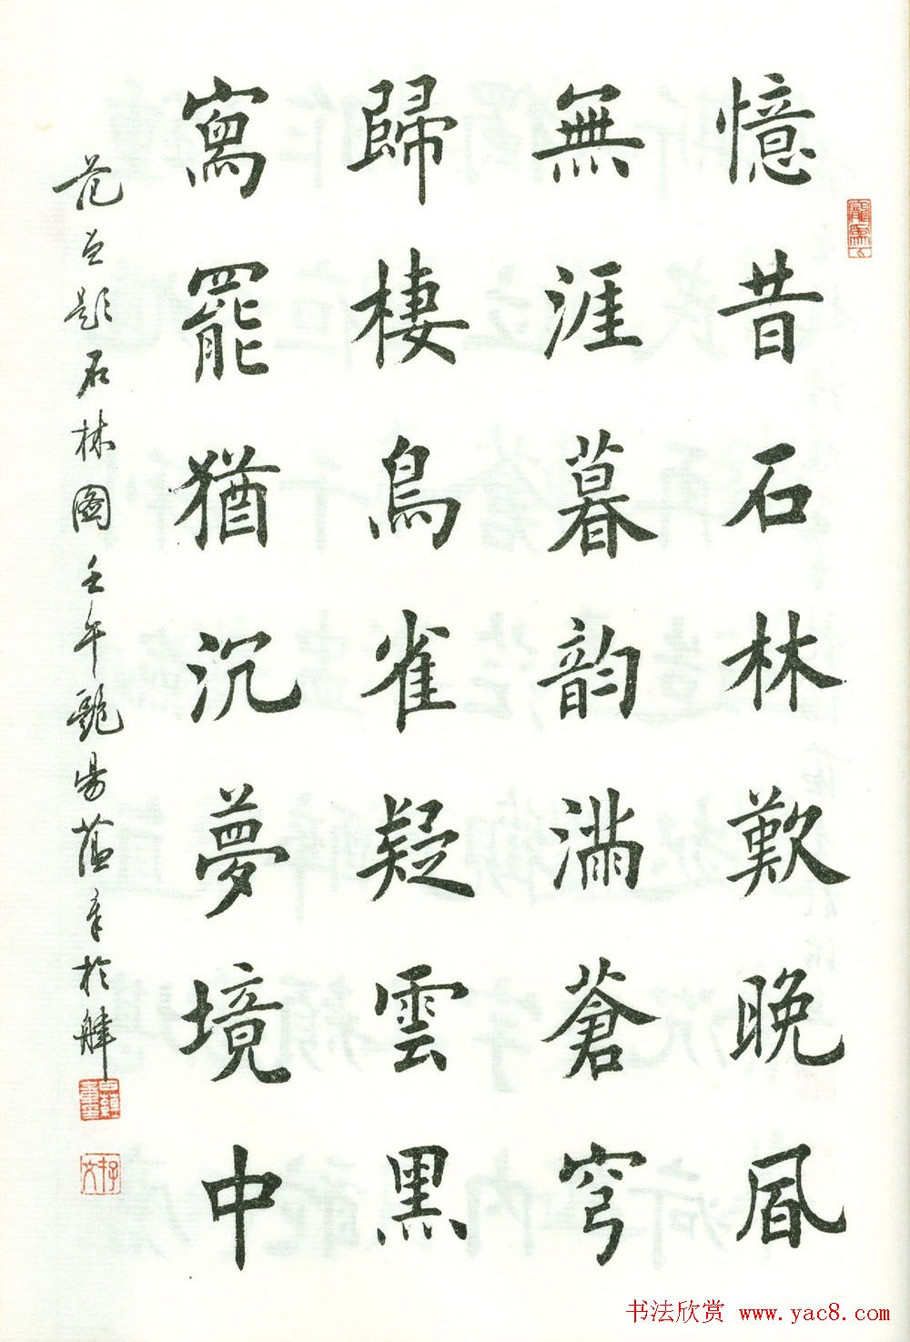 憶昔石林歎晚風
無涯暮韻滿蒼穹
歸棲鳥雀疑雲黑
寫罷猶沉夢境中
范曾題石林圖壬午艷陽蘊章於津
书法欣赏 www.yac8.com